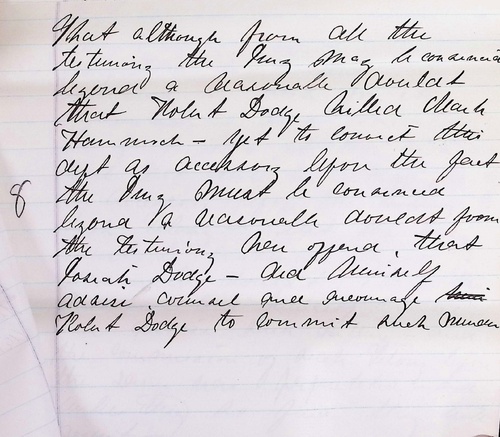 That although from all the
testimony the Jury may be convinced
beyond a reasonable doubt
that Robert Dodge killed Mark
Hammick - yet to convict this
deft as accessory before the fact
8 the Jury must be convinced
beyond a reasonable doubt from
the testimony here offered, that
Josiah Dodge - did himself
advise, counsel and encourage
Robert Dodge to commit such murder